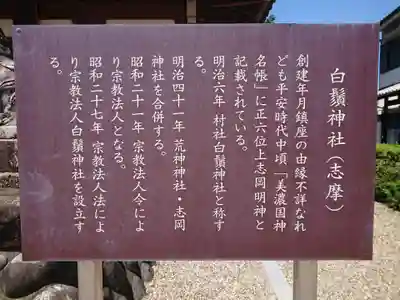 白鬚神社（志摩）
創建年月鎮座の由緣不詳なれ
ども平安時代中頃「美濃国神
名帳」に正六位上志岡明神と
記載されている。
明治六年 村社白鬚神社と称す
る。
明治四十一年 荒神神社・志岡
神社を合併する。
昭和二十一年 宗教法人令によ
り宗教法人となる。
昭和二十七年 宗教法人法によ
り宗教法人白鬚神社を設立す
る。